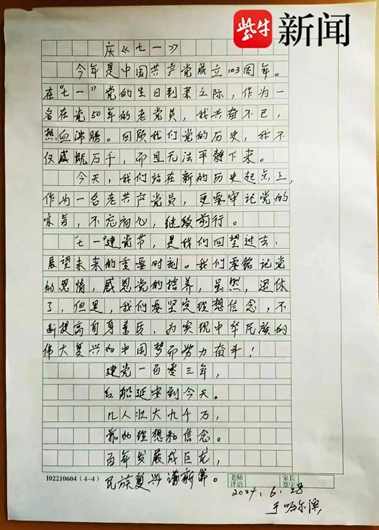 紫牛新闻
庆《七一》
今年是中国共产党成立103周年。
在“七一”党的生日到来之际，作为一
名在党50年的老党员，我兴奋不已，
热血沸腾。回顾我们党的历史，我不
仅感慨万千，而且无法平静下来。
今天，我们站在新的历史起点上，
作为一名老共产党员，更要牢记党的
宗旨，不忘初心，继续前行。
“七一”建党节，是我们回望过去，
展望未来的重要时刻。我们要铭记党
的恩情，感恩党的培养，虽然，退休
了，但是，我们要坚定理想信念，不
断提高自身素质，为实现中华民族的
伟大复兴的中国梦而努力奋斗！
建党一百零三年，
红船延安到今天。
几人壮大九千万，
靠的理想和信念。
百年发展成巨龙，
民族复兴谱新篇。
I02210604（4-4）
老师
评语
家长
签字
2024.6.28
于哈尔滨